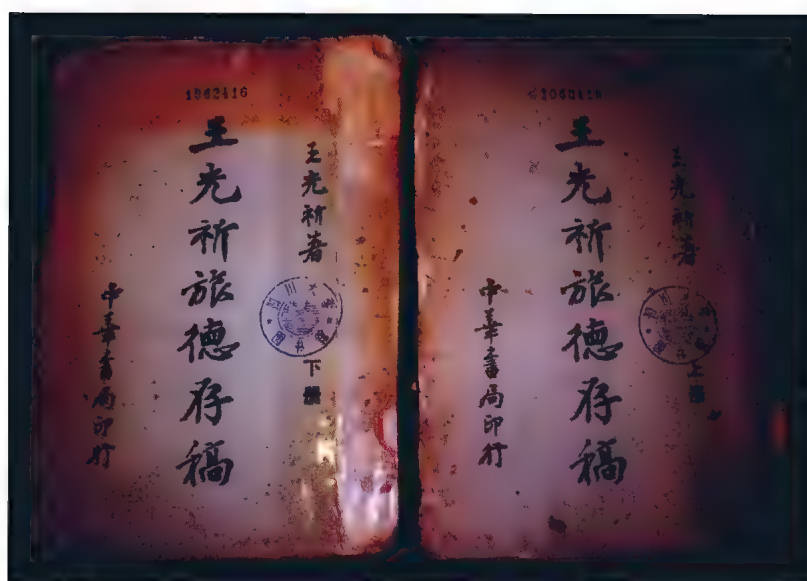 1062416
王光祈著
王光祈旅德存稿
上册
中華書局印行
1062416
王光祈著
王光祈旅德存稿
下册
中華書局印行